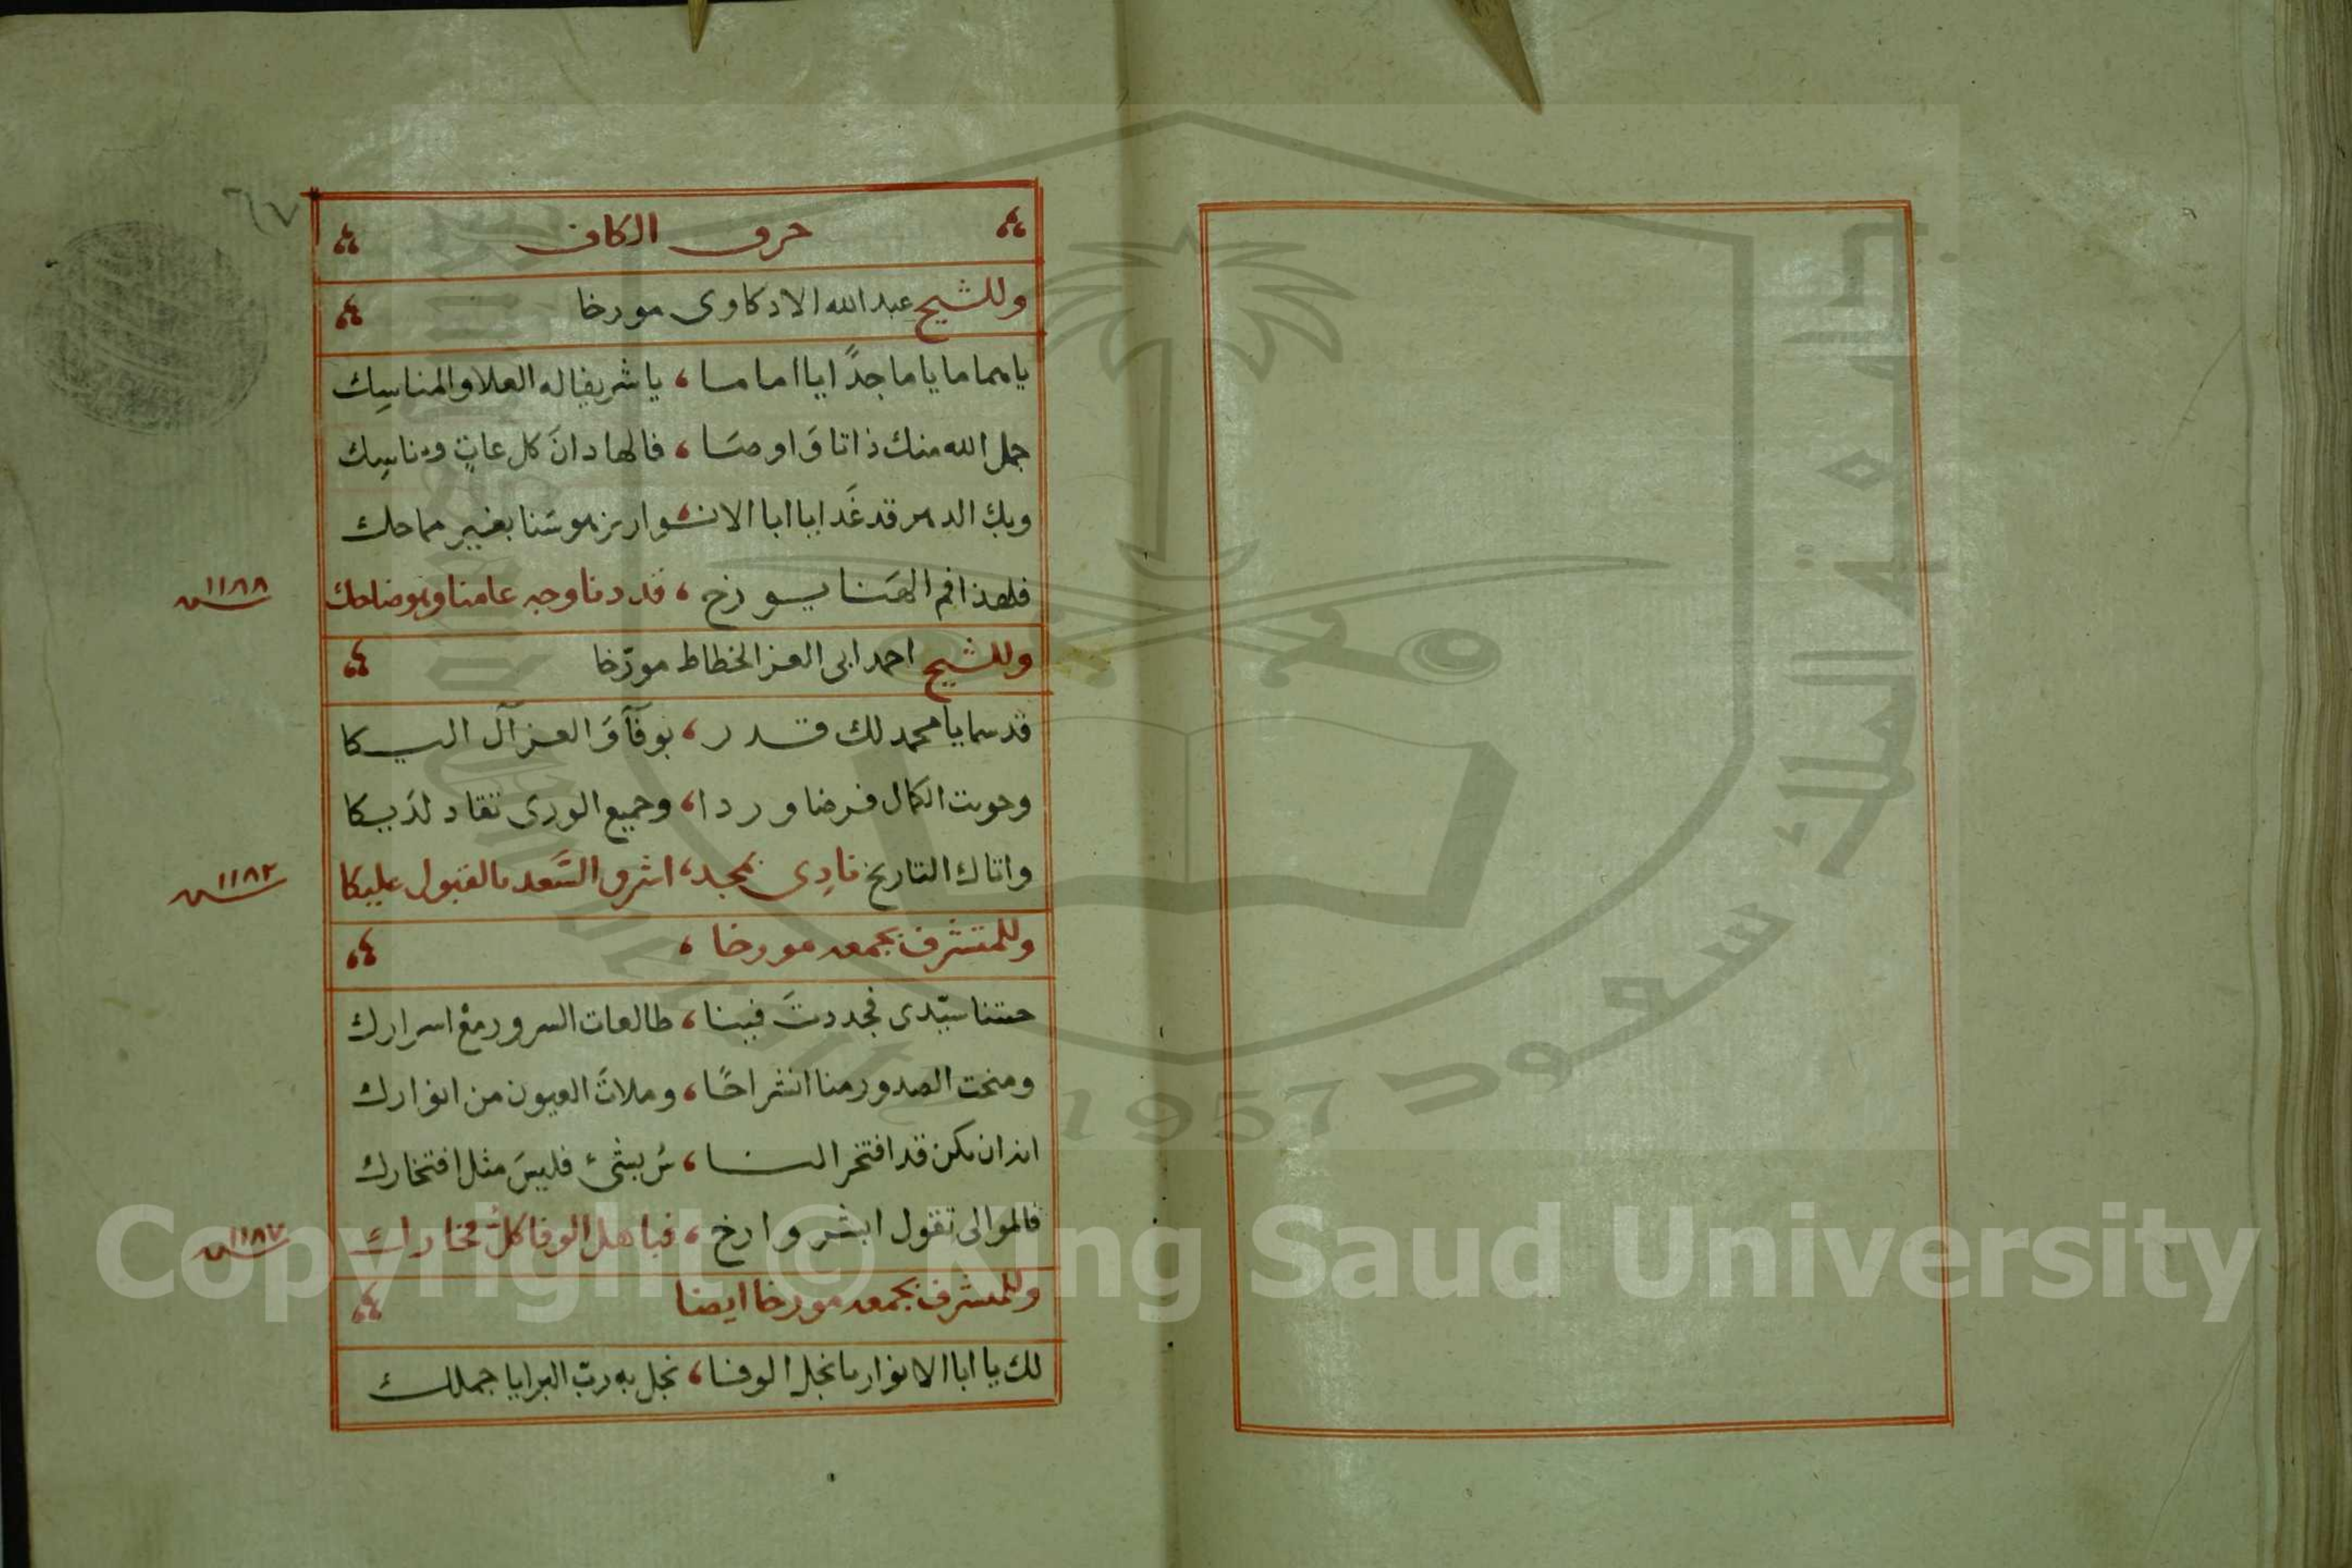 ٦٧
حرف الكاف
وللشيخ عبد الله الادكاوى مورخا
يا هماما يا ماجدًا ايا اماما ، يا شريفا له العلا والمناسِك
جل الله منك ذاتا وَاوصَا ، فا لها دانَ كل عاتٍ وناسِك
وبك الدهر قد غَدا يا ابا الانوار يزهو سَنا بغير مماحك
فلهذا فم الهَنا يورخ ، قد دنا وجه عامنا وهو ضاحك
١١٨٨
وللشيخ احمد ابى العز الخطاط مورّخا
قد سما يا محمد لك قدر ، بوفآ وَالعز آل اليكا
وحويت الكمال فرضا وردا ، وجميع الورى تنقاد لدَيكا
واتاك التاريخ نادِى بمجد ، اشرق السَّعد بالقبول عليكا
١١٨٢
وللمتشرف بجمعه مورخا ،
جئتنا سيّدى فجددتَ فيينا ، طالعات السرور معْ اسرارك
ومنحت الصدور منا انشراحًا ، وملاتَ العيون من انوارك
انه ان يكن قد افتخر النا ، سُ بشئ فليسَ مثل افتخارك
فالموالى تقول ابشر وارخ ، فباهل الوفا كلُ فخارك
١١٨٧
وللمتشرف بجمعه مورخا ايضا
لك يا ابا الانوار يا نجل الوفا ، نجل به ربّ البرايا جملك
Copyright © King Saud University
جامعة الملك سعود
1957